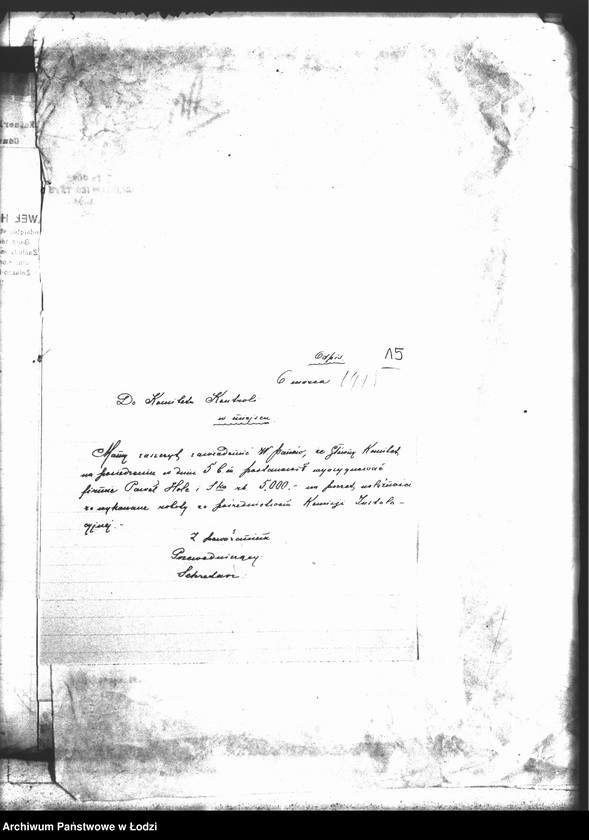 Odpis. 15
6 marca 1915
Do Komitetu Kontroli
w miejscu
Mamy zaszczyt zawiadomić W Panów, że Główny Komitet
na posiedzeniu w dniu 5 b m postanowił wyasygnować
firmie Paweł Holc i Ska rb 5.000.- na poczet należności
za wykonane roboty za pośrednictwem Komisji Instala-
cyjnej.-
Z poważaniem
Przewodniczący:
Sekretarz:
Archiwum Państwowe w Łodzi